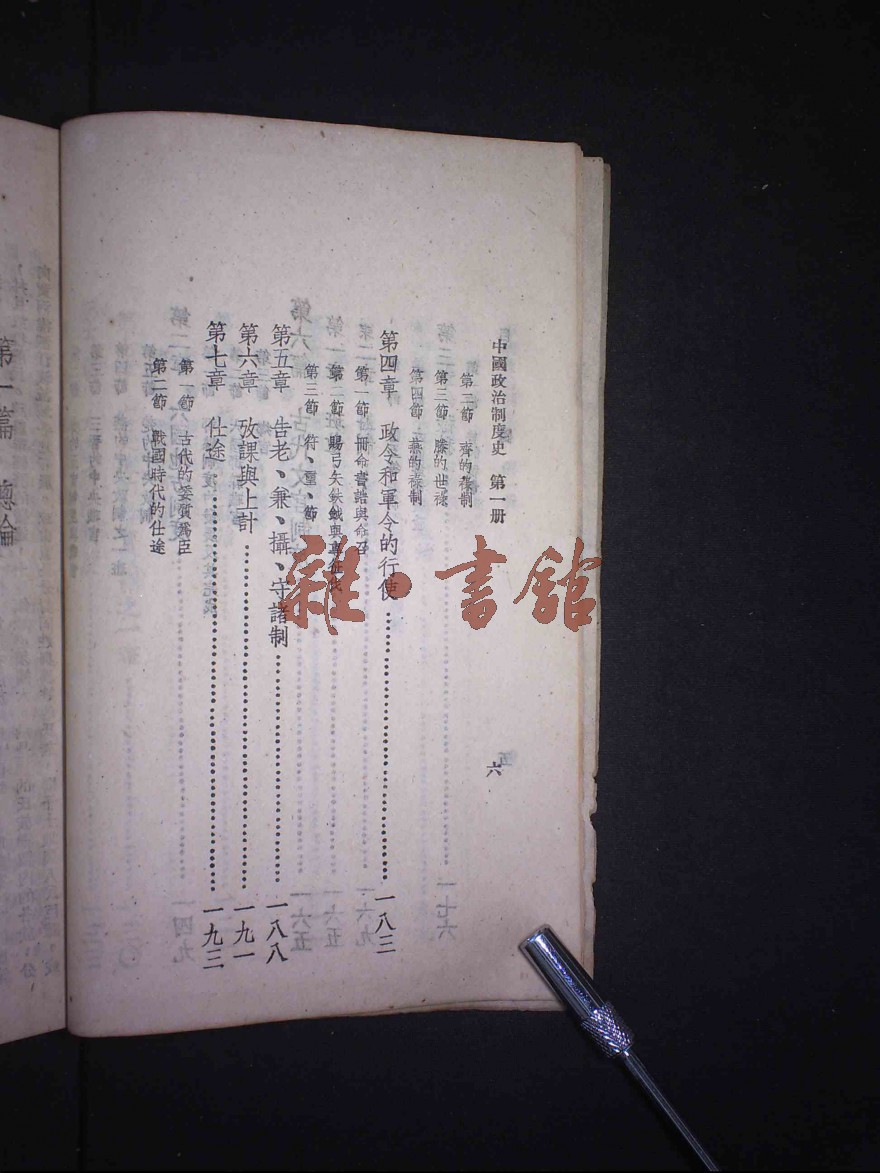 中國政治制度史 第一册
六
第二節 齊的祿制
第三節 滕的世祿
第四節 燕的祿制
第四章 政令和軍令的行使…………一八三
第一節 册命書誥與命召
第二節 賜弓矢鈇鉞與專征伐
第三節 符、璽、節
第五章 告老、兼、攝、守諸制…………一八八
第六章 攷課與上計…………一九一
第七章 仕途…………一九三
第一節 古代的委質爲臣
第二節 戰國時代的仕途
第一篇 總論
雜·書館